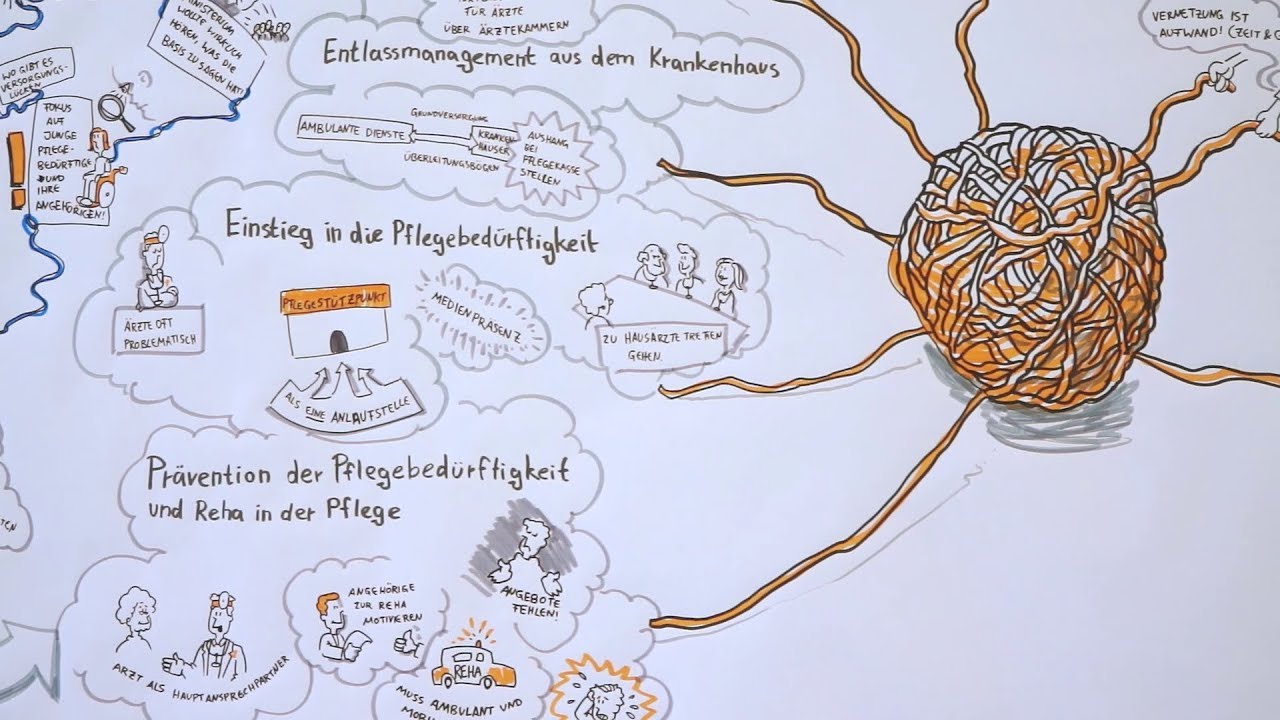 MINISTERIUM
WOLLTE WIRKLICH
HÖREN, WAS DIE
BASIS ZU SAGEN HAT!
WO GIBT ES
VERSORGUNGS-
LÜCKEN
FOKUS
AUF
JUNGE
PFLEGE-
BEDÜRFTIGE
UND
IHRE
ANGEHÖRIGEN!
!
FÜR ÄRZTE
ÜBER ÄRZTEKAMMERN
Entlassmanagement aus dem Krankenhaus
AMBULANTE DIENSTE
GRUNDVERSORGUNG
ÜBERLEITUNGSBÖGEN
KRANKEN
HÄUSER
AUSHANG
BEI
PFLEGEKASSE
STELLEN
VERNETZUNG IST
AUFWAND! (ZEIT & G
Einstieg in die Pflegebedürftigkeit
ÄRZTE OFT
PROBLEMATISCH
PFLEGESTÜTZPUNKT
ALS EINE ANLAUFSTELLE
MEDIENPRÄSENZ
ZU HAUSÄRZTE TREFFEN
GEHEN.
Prävention der Pflegebedürftigkeit
und Reha in der Pflege
ANGEBOTE
FEHLEN!
ARZT ALS HAUPTANSPRECHPARTNER
ANGEHÖRIGE
ZUR REHA
MOTIVIEREN
REHA
MUSS AMBULANT UND